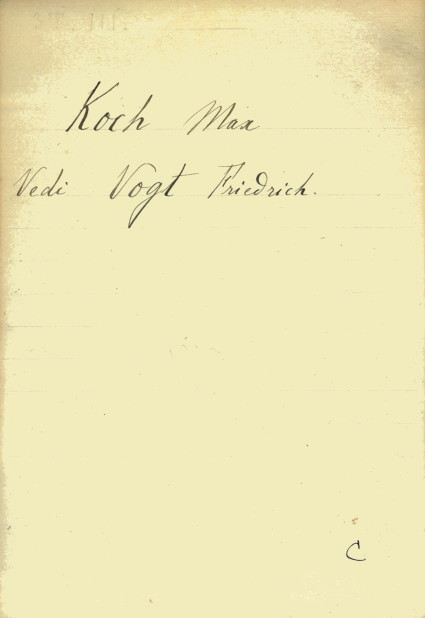 Koch Max
Vedi Vogt Friedrich.
C